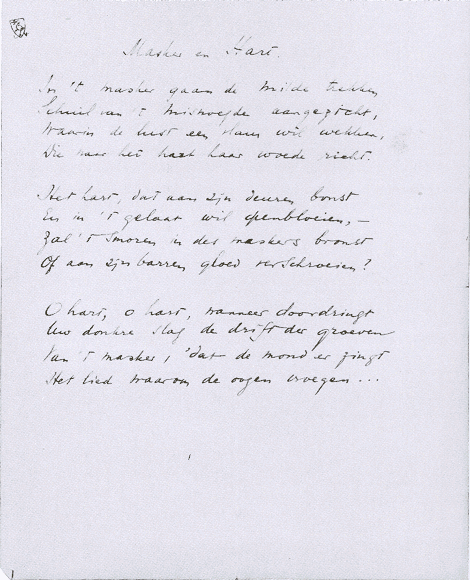 Masker en Hart.
In 't masker gaan de milde trekken
Schuil van 't misvoegde aangezicht,
Waarin de lust een vlam wil wekken,
Die naar het hart haar woede richt.
Het hart, dat aan zijn deuren bonst
En in 't gelaat wil openbloeien, –
Zal 't smoren in des maskers bronst
Of aan zijn barren gloed verschroeien?
O hart, o hart, wanneer doordringt
Uw donkre slag de drift der groeven
Van 't masker, dat de mond er zingt
Het lied waarom de oogen vroegen...